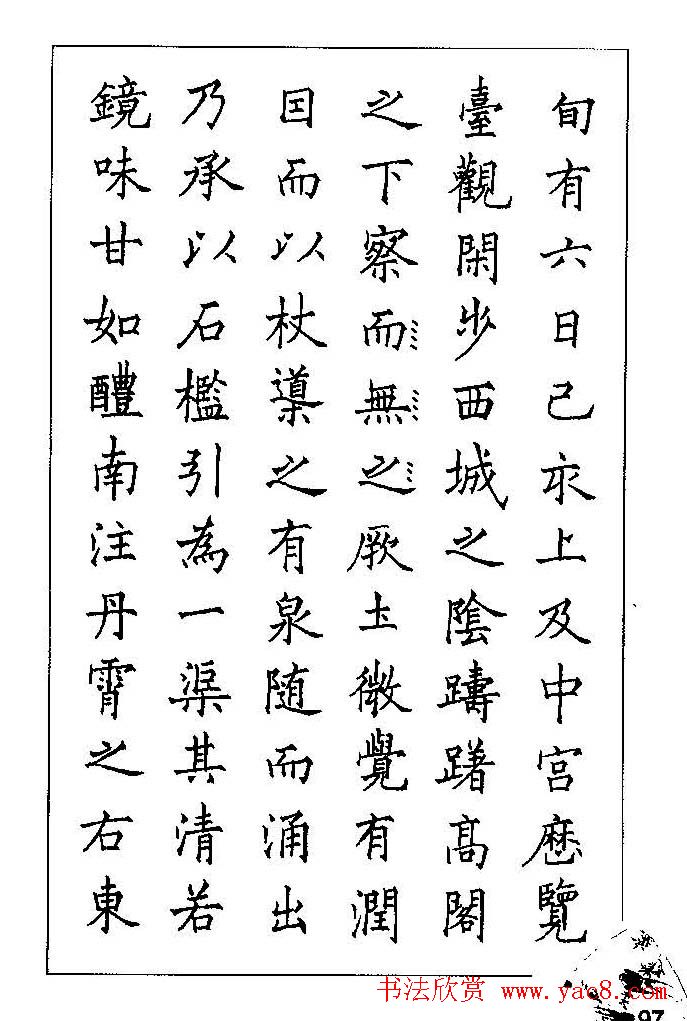 旬有六日己亥上及中宫歴覽
臺觀閑步西城之陰躊躇髙閣
之下察而無之厥土微覺有潤
囙而以杖導之有泉随而涌出
乃承以石檻引為一渠其清若
鏡味甘如醴南注丹霄之右東
书法欣赏 www.yac8.com
97